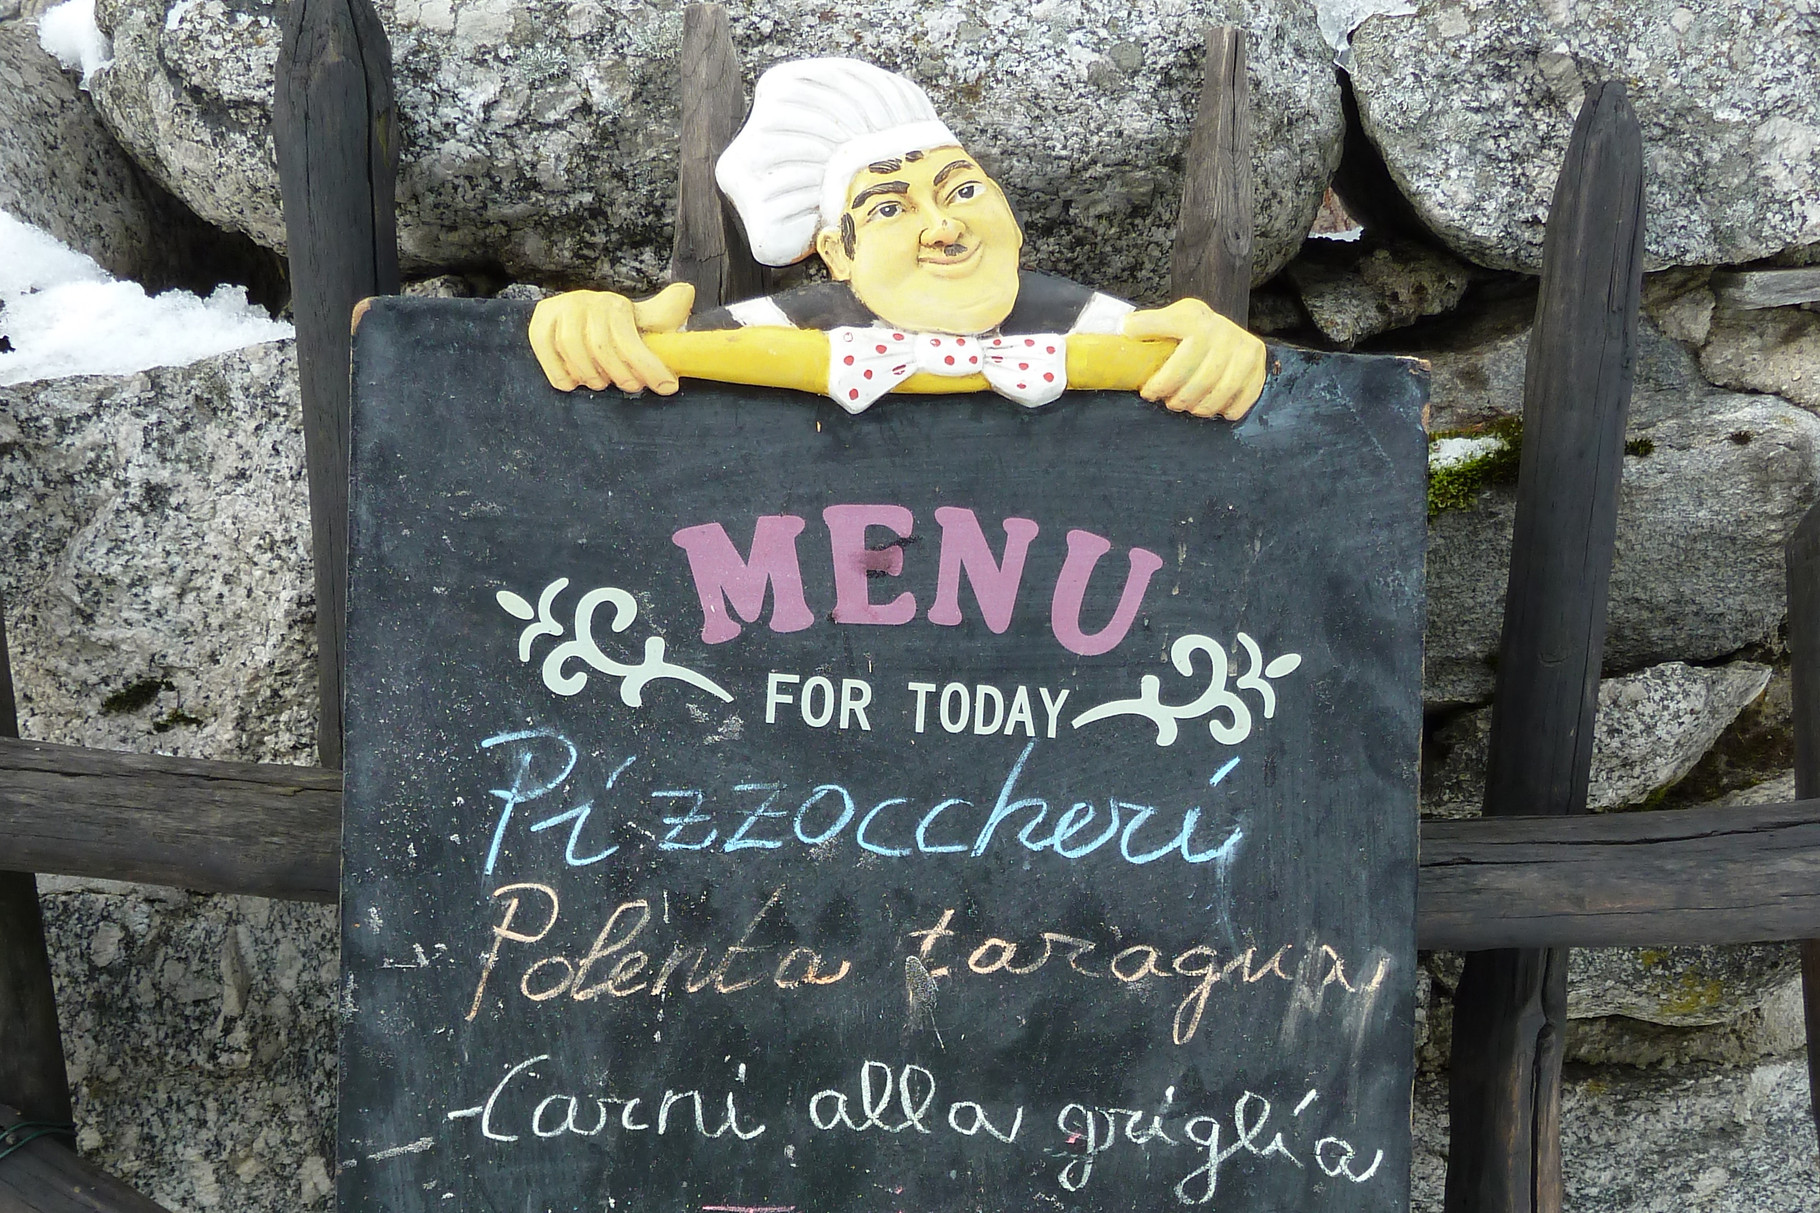 MENU
FOR TODAY
Pizzoccheri
Polenta taragna
Carni alla griglia